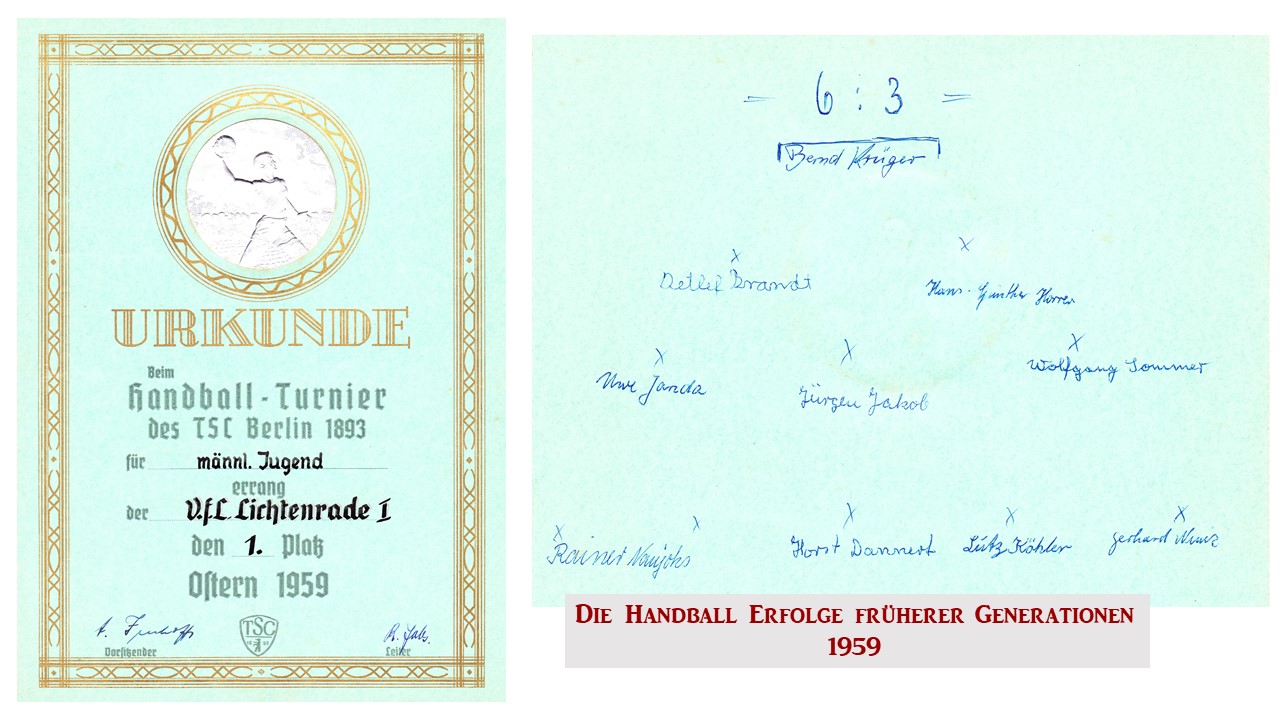 URKUNDE
Beim
Handball-Turnier
des TSC Berlin 1893
für männl. Jugend
errang
der V.f.L. Lichtenrade I
den 1. Platz
Ostern 1959
Vorsitzender
TSC
Leiter
= 6 : 3 =
Bernd Krüger
x x
Detlef Brandt Hans-Günther
x x x
Uwe Janda Jürgen Jakob Wolfgang Sommer
x x x x x
Rainer Horst Dannert Lutz Köhler Gerhard
Die Handball Erfolge früherer Generationen
1959